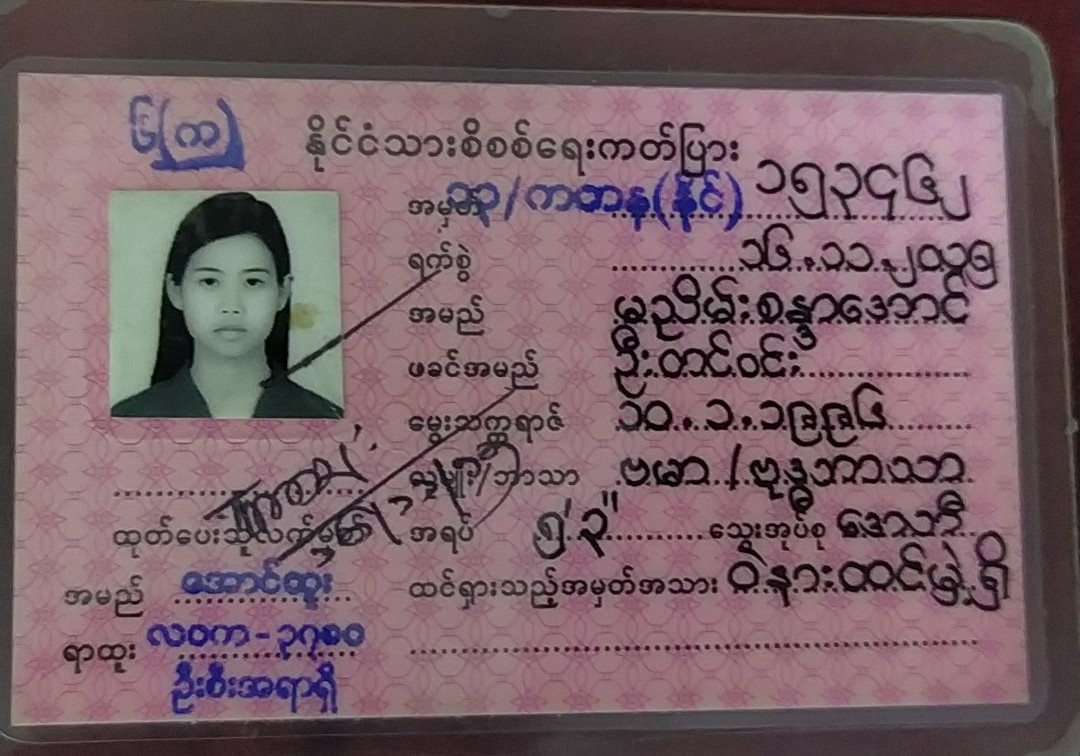 ၆(က)
နိုင်ငံသားစိစစ်ရေးကတ်ပြား
အမှတ် /ကတန(နိုင်) ၁၅၃၄၆၂
ရက်စွဲ ၁၆.၁၁.၂၀၁၅
အမည် မညိမ်းစန္ဒာအောင်
ဖခင်အမည် ဦးတင်ဝင်း
မွေးသက္ကရာဇ် ၁၀.၁.၁၉၉၆
လူမျိုး/ဘာသာ ဗမာ/ဗုဒ္ဓဘာသာ
အရပ် ၅'၃" သွေးအုပ်စု
ထင်ရှားသည့်အမှတ်အသား ဝဲနားထင်မှဲ့ရှိ
ထုတ်ပေးသူလက်မှတ်
အမည် အောင်ထူး
ရာထူး လဝက-၃၇၈၀
ဦးစီးအရာရှိ